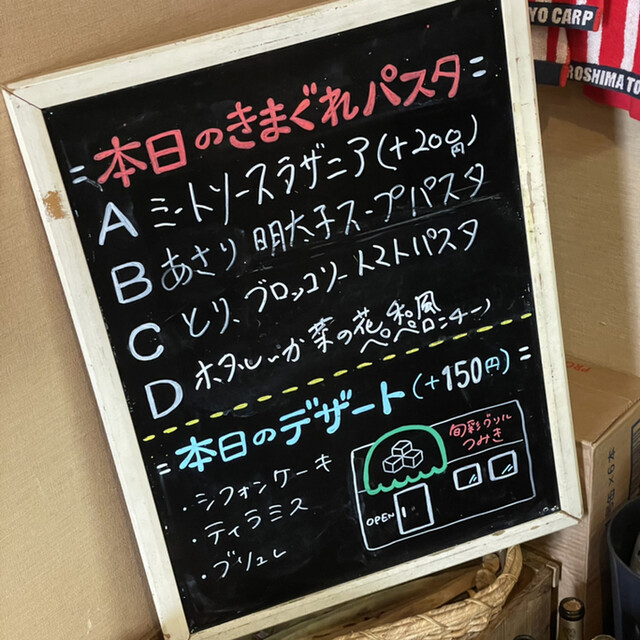 YO CARP
ROSHIMA TO
=本日のきまぐれパスタ=
A ミートソースラザニア(+200円)
B あさり 明太子スープパスタ
C とり、ブロッコリー トマトパスタ
D ホタルいか 菜の花 和風ペペロンチーノ
=本日のデザート(+150円)=
・シフォンケーキ
・ティラミス
・ブリュレ
旬彩グリル
つみき
OPEN